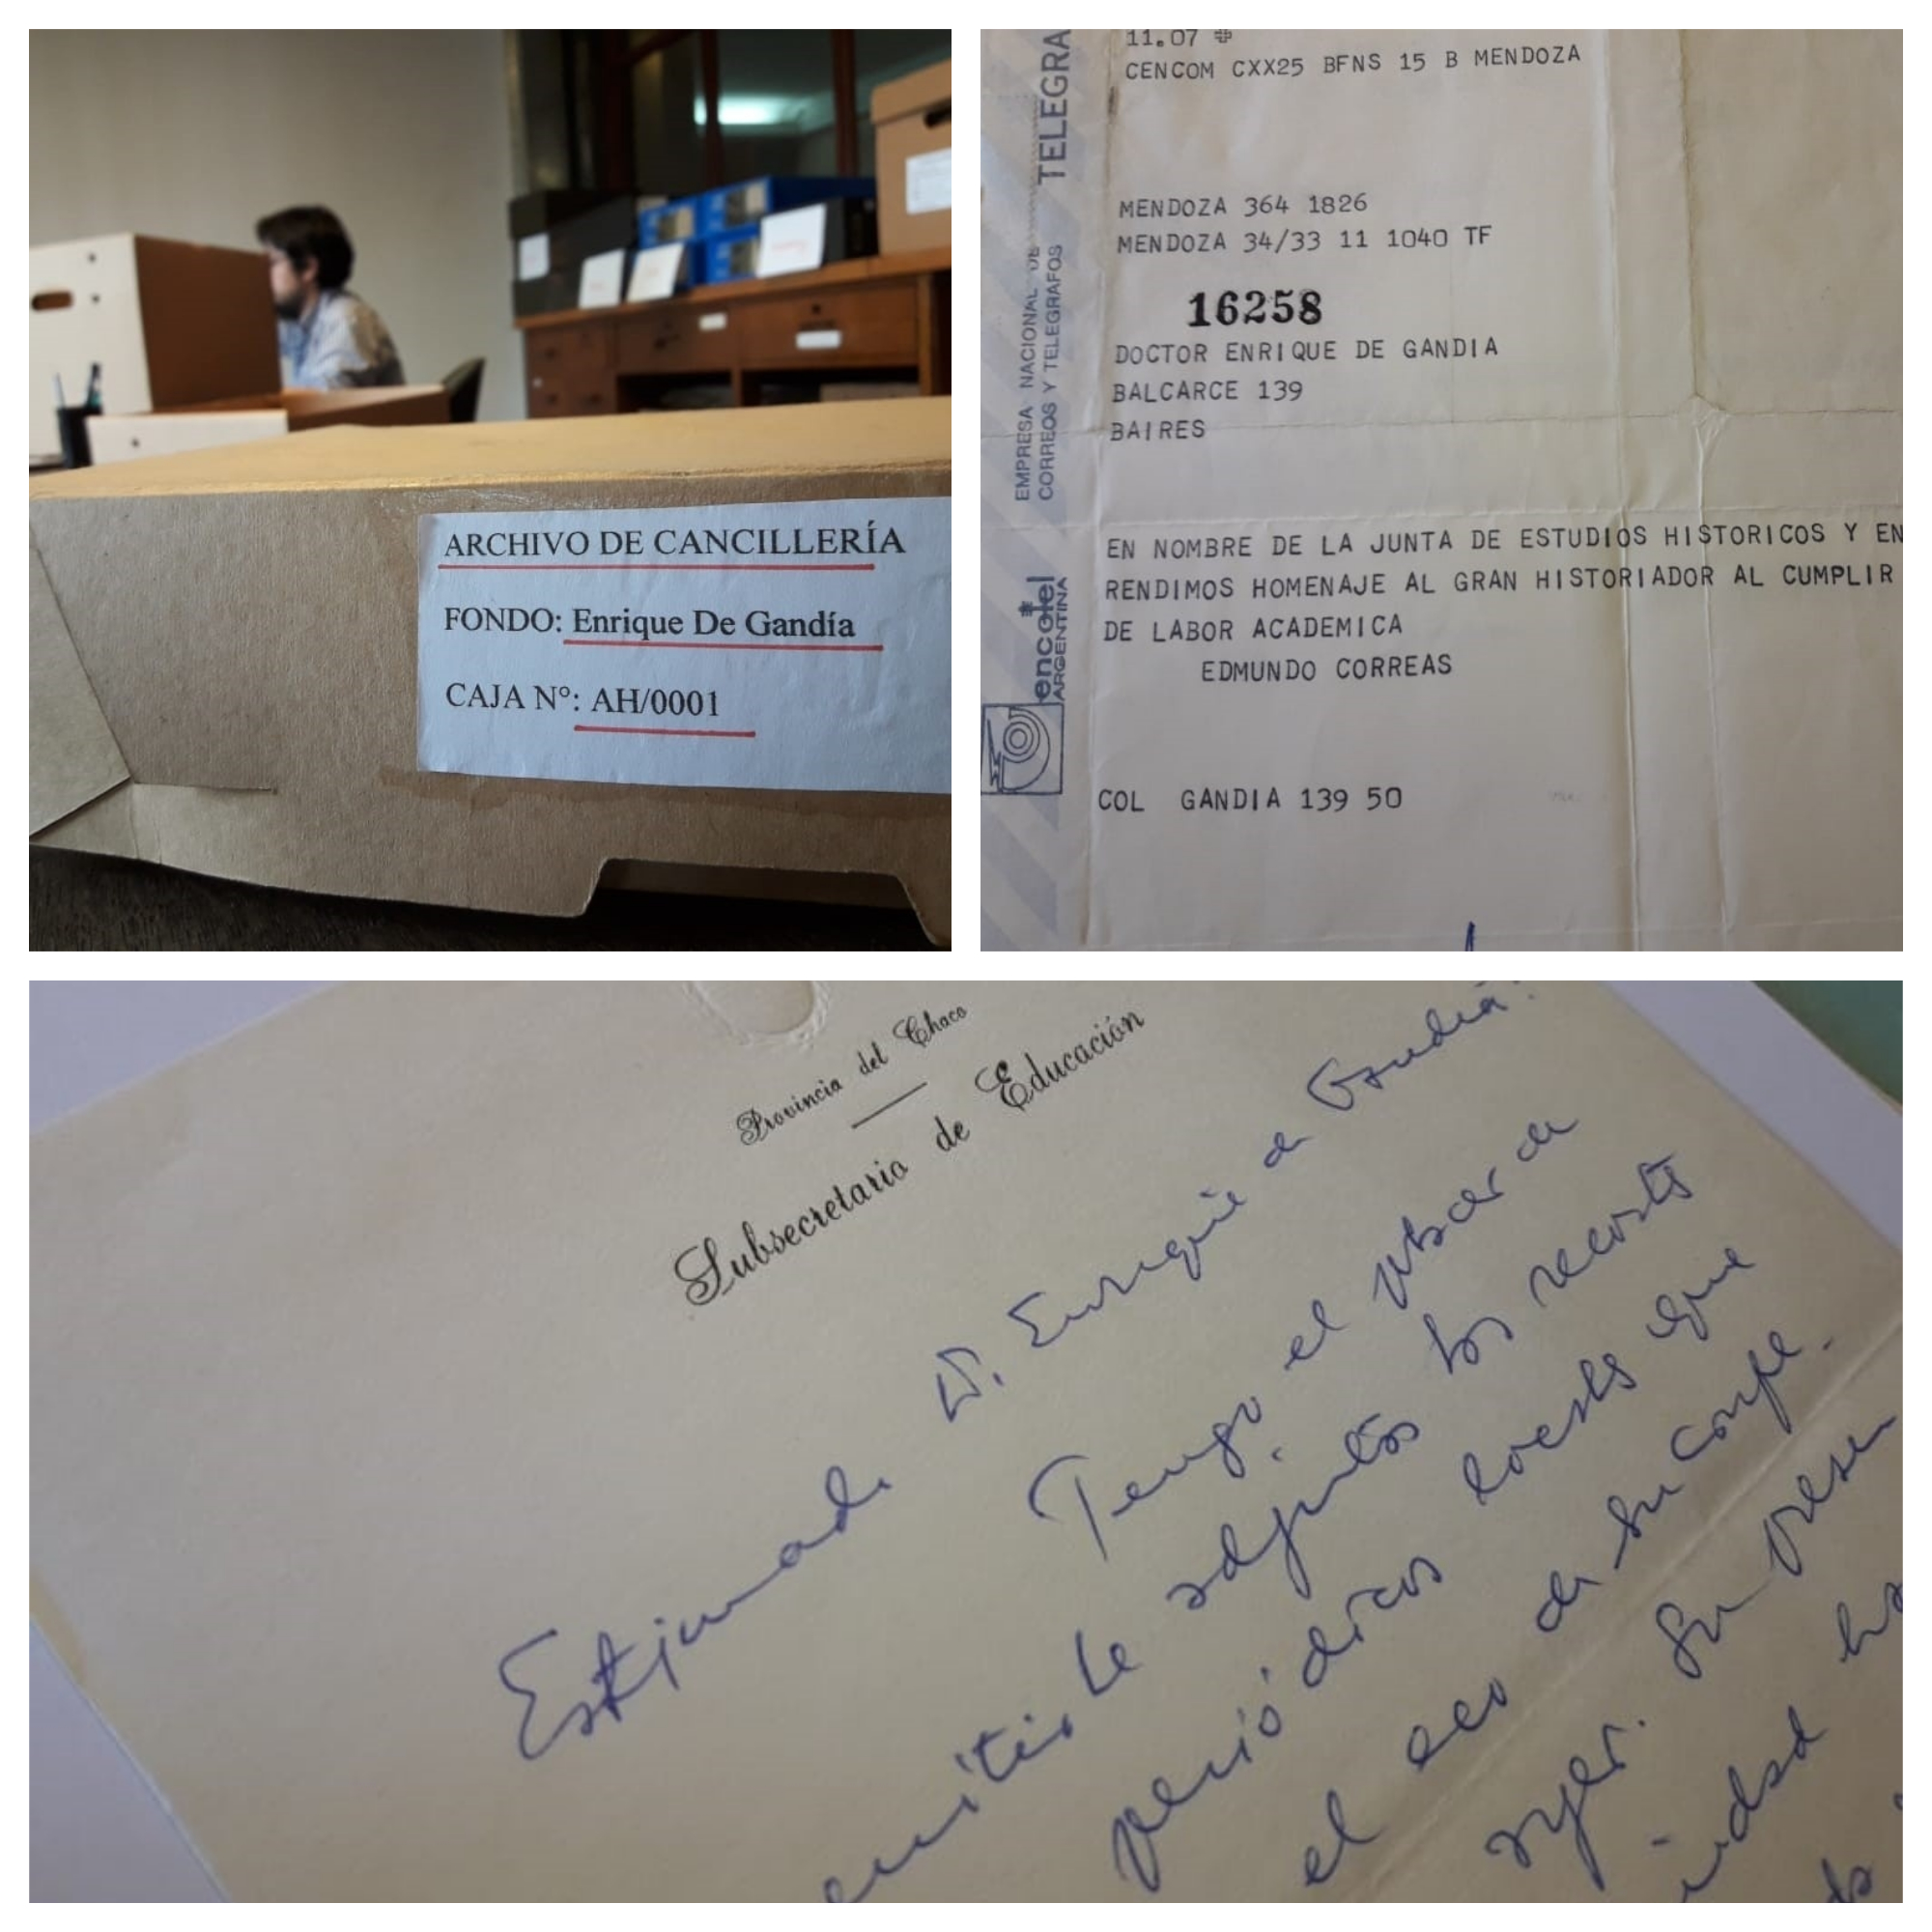 ARCHIVO DE CANCILLERÍA
FONDO: Enrique De Gandía
CAJA Nº: AH/0001
11.07
CENCOM CXX25 BFNS 15 B MENDOZA
MENDOZA 364 1826
MENDOZA 34/33 11 1040 TF
16258
DOCTOR ENRIQUE DE GANDIA
BALCARCE 139
BAIRES
EN NOMBRE DE LA JUNTA DE ESTUDIOS HISTORICOS Y EN
RENDIMOS HOMENAJE AL GRAN HISTORIADOR AL CUMPLIR
DE LABOR ACADEMICA
EDMUNDO CORREAS
COL GANDIA 139 50
TELEGRA
EMPRESA NACIONAL DE
CORREOS Y TELEGRAFOS
encotel
ARGENTINA
Provincia del Chaco
Subsecretario de Educación
Estimado D. Enrique de Gandía:
Tengo el placer de
le adjuntos los recortes
periódicos locales que
el eco de su confe-
ayer. Su presen